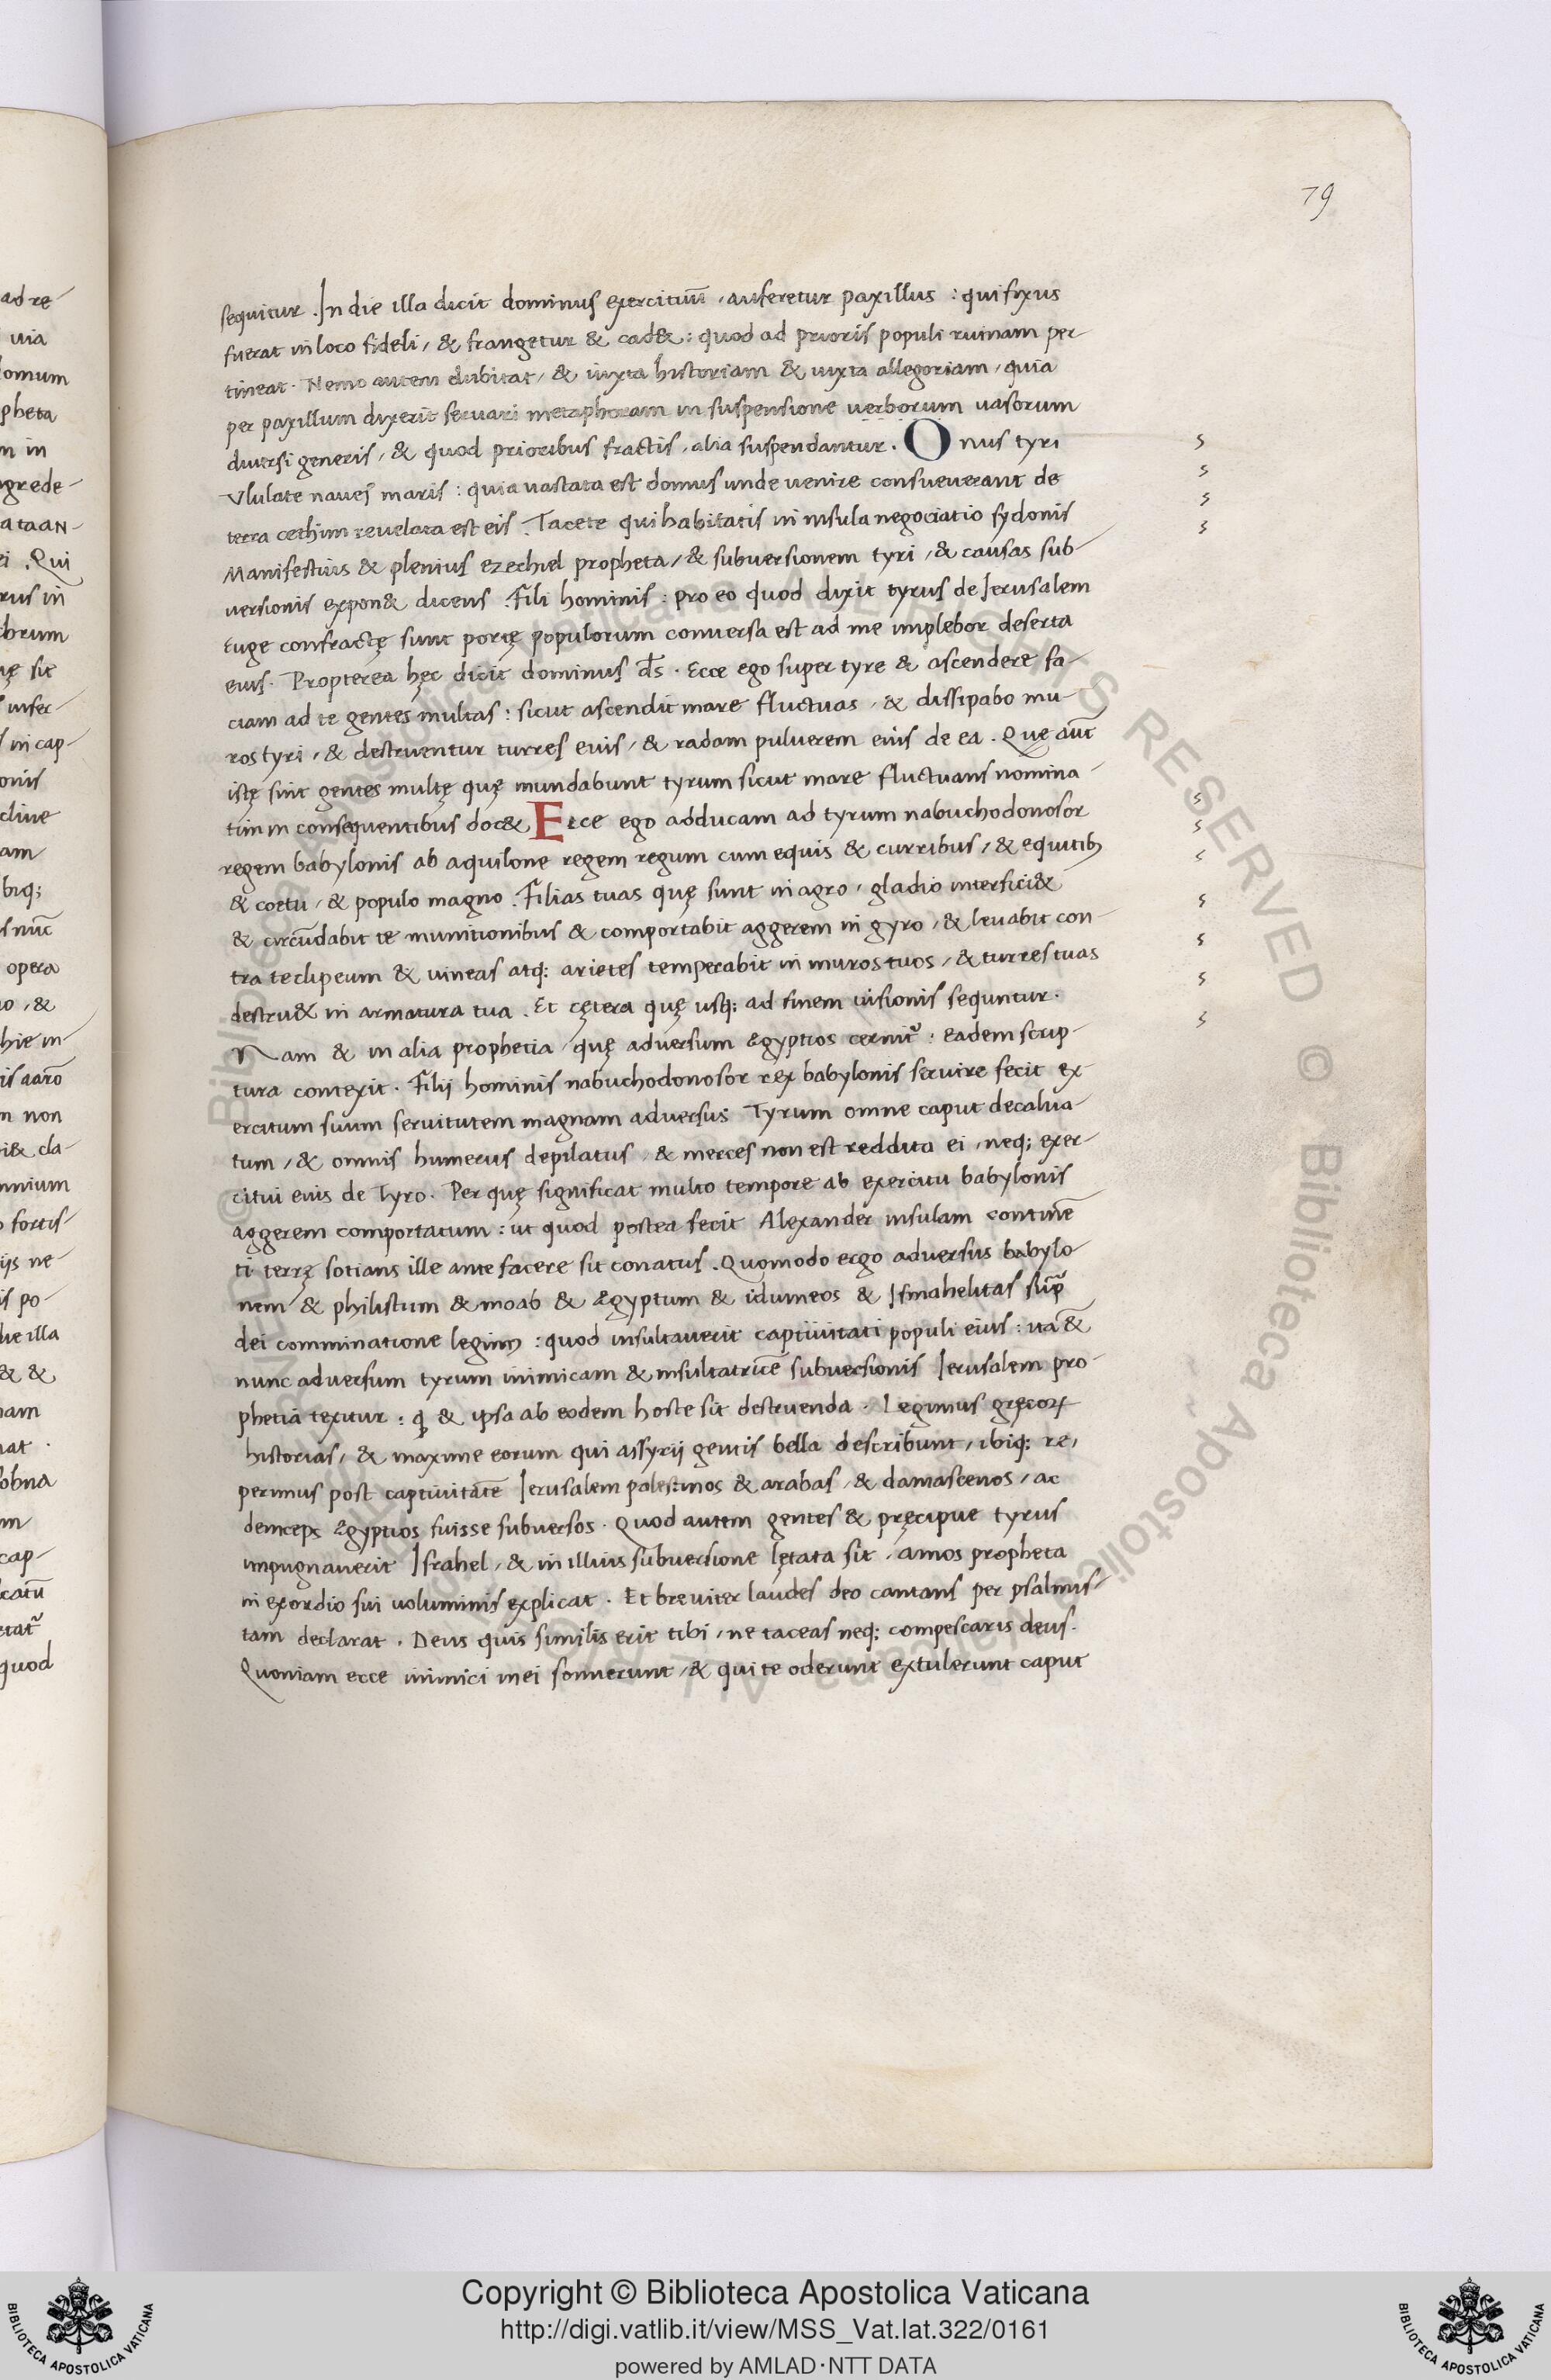 79
sequitur . In die illa dicit dominus exercituū , auferetur paxillus : qui fixus
fuerat in loco fideli , & frangetur & cad& : quod ad prioris populi ruinam per-
tineat . Nemo autem dubitat , & iuxta historiam & iuxta allegoriam , quia
per paxillum dixerit seruari metaphoram in suspensione uerborum uasorum
diuersi generis , & quod prioribus fractis , alia suspendantur . Onus tyri
Vlulate naues maris : quia uastata est domus unde uenire consueuerant de
terra cethim reuelata est eis . Tacete qui habitatis in insula negociatio sydonis
Manifestius & plenius ezechiel propheta , & subuersionem tyri , & causas sub-
uersionis expon& dicens . Fili hominis : pro eo quod dixit tyrus de Jerusalem
Euge confractę sunt portę populorum conuersa est ad me implebor deserta
eius . Propterea hęc dicit dominus d̄s . Ecce ego super tyre & ascendere fa-
ciam ad te gentes multas : sicut ascendit mare fluctuas , & dissipabo mu-
ros tyri , & destruentur turres eius , & radam puluerem eius de ea . Quę aūt
istę sint gentes multę quę inundabunt tyrum sicut mare fluctuans nomina-
tim in consequentibus doc& Ecce ego adducam ad tyrum nabuchodonosor
regem babylonis ab aquilone regem regum cum equis & curribus , & equitib;
& coetu , & populo magno . Filias tuas quę sunt in agro , gladio interfici&
& circūdabit te munitionibus & comportabit aggerem in gyro , & leuabit con-
tra te clipeum & uineas atq; arietes temperabit in muros tuos , & turres tuas
destru& in armatura tua . Et cętera quę usq; ad finem uisionis sequntur .
Nam & in alia prophetia , quę aduersum ęgyptios cernit̄ : eadem scrip-
tura contexit . Filij hominis nabuchodonosor rex babylonis seruire fecit ex-
ercitum suum seruitutem magnam aduersus Tyrum omne caput decalua-
tum , & omnis humerus depilatus , & merces non est reddita ei , neq; exer-
citui eius de Tyro . Per quę significat multo tempore ab exercitu babylonis
aggerem comportatum : ut quod postea fecit Alexander insulam contine̅
ti terrę sotians ille ante facere sit conatus . Quomodo ergo aduersus babylo
nem & philistum & moab & Ęgyptum & idumeos & Ismahelitas sup̄
dei comminatione legim; : quod insultauerit captiuitati populi eius : ita &
nunc aduersum tyrum inimicam & insultatricē subuersionis Jerusalem pro-
phetia texitur : q̨ & ipsa ab eodem hoste sit destruenda . Legimus gręcoꝝ
historias , & maxime eorum qui assyrij gentis bella describunt , ibiq; re,
perimus post captiuitatē Jerusalem palestinos & arabas , & damascenos , ac
deinceps Ęgyptios fuisse subuersos . Quod autem gentes & pręcipue tyrus
impugnauerit Israhel , & in illius subuersione lętata sit , amos propheta
in exordio sui uoluminis explicat . Et breuiter laudes deo cantans per psalmis-
tam declarat . Deus quis similis erit tibi , ne taceas neq; compescaris deus .
Quoniam ecce inimici mei sonuerunt , & qui te oderunt extulerunt caput
Copyright © Biblioteca Apostolica Vaticana
http://digi.vatlib.it/view/MSS_Vat.lat.322/0161
powered by AMLAD·NTT DATA